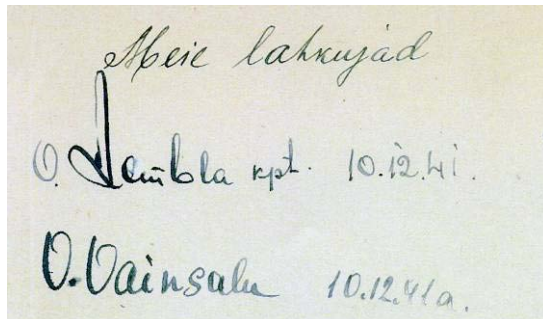 Meie lahkujad
O. Jembla kpt. 10.12.41.
O. Vainsalu 10.12.41a.